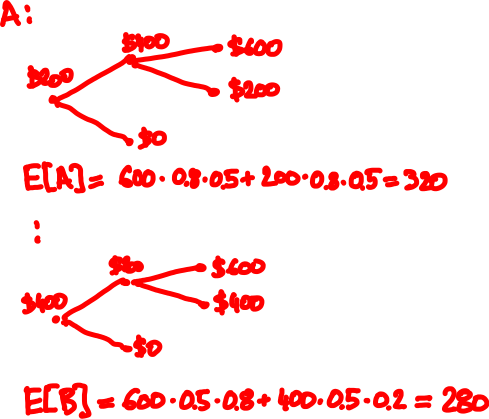 A:
$400 $600
$200 $200
$0
E[A] = 600 · 0.8 · 0.5 + 200 · 0.8 · 0.5 = 320
:
$600
$400 $400
$0
E[B] = 600 · 0.5 · 0.8 + 400 · 0.5 · 0.2 = 280